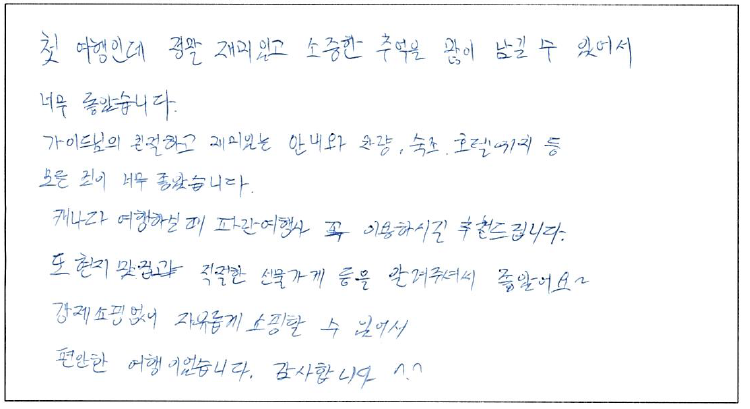 첫 여행인데 정말 재미있고 소중한 추억을 많이 남길 수 있어서
너무 좋았습니다.
가이드님의 친절하고 재미있는 안내와 차량, 숙소, 호텔까지 등
모든 것이 너무 좋았습니다.
캐나다 여행하실 때 파란여행사 꼭 이용하시길 추천드립니다.
또 현지 맛집과 적절한 선물가게 등을 알려주셔서 좋았어요~
강제쇼핑없이 자유롭게 쇼핑할 수 있어서
편안한 여행이었습니다. 감사합니다 ^^